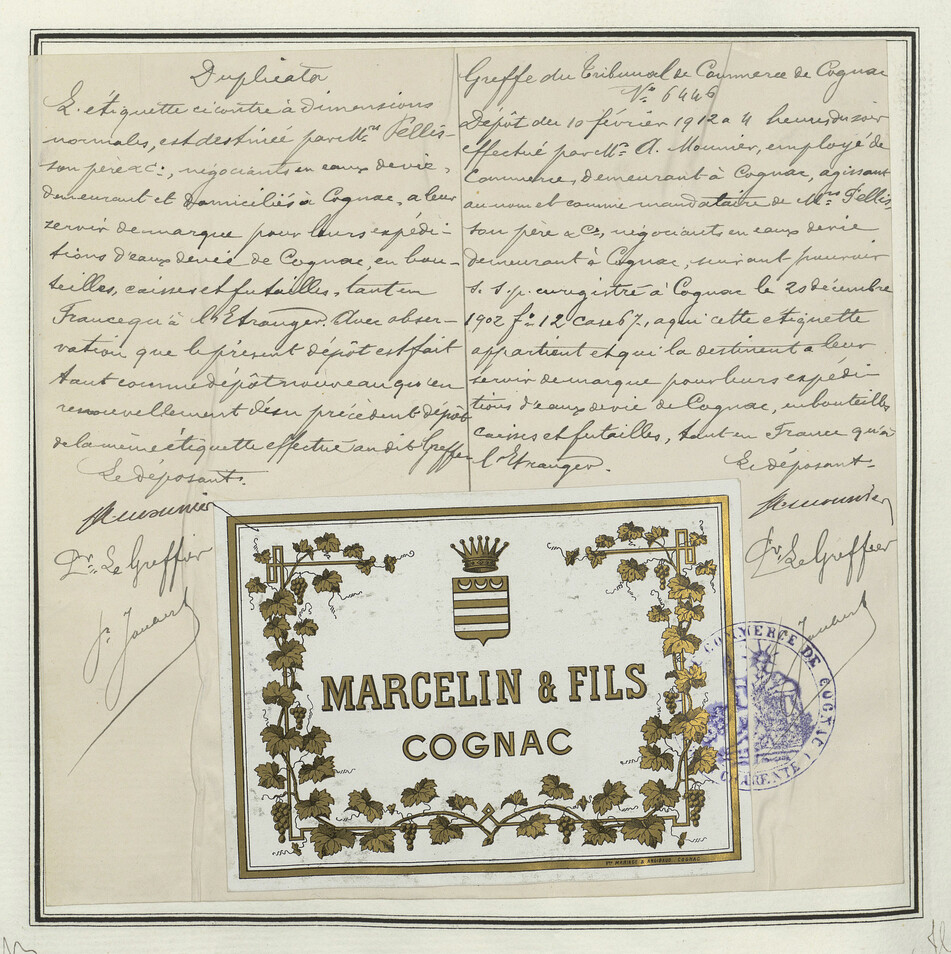 Duplicata
L'étiquette ci contre à dimensions
normales, est destinée par Mrs Pellis-
son père & Ce, négociants en eaux de vie,
demeurant et domiciliés à Cognac, a leur
servir de marque pour leurs expédi-
tions d'eaux de vie de Cognac, en bou-
teilles, caisses et futailles, tant en
France qu'à l'Etranger. Avec obser-
vation que le présent dépôt est fait
tant comme dépôt nouveau qu'en
renouvellement d'un précédent dépôt
de la même étiquette effectué au dit Greffe
Le déposant.
A Mounier
Pr Le Greffier
Joubert
Greffe du Tribunal de Commerce de Cognac
No 6446
Dépôt du 10 février 1912 a 4 heures du soir
effectué par Mr A. Mounier, employé de
Commerce, demeurant à Cognac, agissant
au nom et comme mandataire de Mrs Pellis-
son père & Ce, négociants en eaux de vie
demeurant à Cognac, suivant pouvoir
s. s. p. enregistré à Cognac le 20 décembre
1902 fo 12 case 67, a qui cette etiquette
appartient et qui la destinent a leur
servir de marque pour leurs expédi-
tions d'eaux de vie de Cognac, en bouteilles
caisses et futailles, tant en France qu'à
l'Etranger.
Le déposant.
A Mounier
Pr Le Greffier
Joubert
MARCELIN & FILS
COGNAC
COMMERCE DE COGNAC
CHARENTE